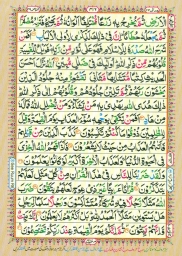 الْاَرْضِ ثُمَّ يُخْرِجُ بِهٖ زَرْعًا مُّخْتَلِفًا اَلْوَانُهٗ ثُمَّ يَهِيْجُ فَتَرٰىهُ مُصْفَرًّا
ثُمَّ يَجْعَلُهٗ حُطَامًا اِنَّ فِيْ ذٰلِكَ لَذِكْرٰى لِاُولِي الْاَلْبَابِ اَفَمَنْ
شَرَحَ اللّٰهُ صَدْرَهٗ لِلْاِسْلَامِ فَهُوَ عَلٰى نُوْرٍ مِّنْ رَّبِّهٖ فَوَيْلٌ لِّلْقٰسِيَةِ
قُلُوْبُهُمْ مِّنْ ذِكْرِ اللّٰهِ اُولٰٓئِكَ فِيْ ضَلٰلٍ مُّبِيْنٍ اَللّٰهُ نَزَّلَ اَحْسَنَ
الْحَدِيْثِ كِتٰبًا مُّتَشَابِهًا مَّثَانِيَ تَقْشَعِرُّ مِنْهُ جُلُوْدُ الَّذِيْنَ
يَخْشَوْنَ رَبَّهُمْ ثُمَّ تَلِيْنُ جُلُوْدُهُمْ وَقُلُوْبُهُمْ اِلٰى ذِكْرِ اللّٰهِ
ذٰلِكَ هُدَى اللّٰهِ يَهْدِيْ بِهٖ مَنْ يَّشَآءُ وَمَنْ يُّضْلِلِ اللّٰهُ فَمَا لَهٗ
مِنْ هَادٍ اَفَمَنْ يَّتَّقِيْ بِوَجْهِهٖ سُوْٓءَ الْعَذَابِ يَوْمَ الْقِيٰمَةِ وَقِيْلَ
لِلظّٰلِمِيْنَ ذُوْقُوْا مَا كُنْتُمْ تَكْسِبُوْنَ كَذَّبَ الَّذِيْنَ مِنْ قَبْلِهِمْ
فَاَتٰىهُمُ الْعَذَابُ مِنْ حَيْثُ لَا يَشْعُرُوْنَ فَاَذَاقَهُمُ اللّٰهُ الْخِزْيَ
فِي الْحَيٰوةِ الدُّنْيَا وَلَعَذَابُ الْاٰخِرَةِ اَكْبَرُ لَوْ كَانُوْا يَعْلَمُوْنَ
وَلَقَدْ ضَرَبْنَا لِلنَّاسِ فِيْ هٰذَا الْقُرْاٰنِ مِنْ كُلِّ مَثَلٍ لَّعَلَّهُمْ
يَتَذَكَّرُوْنَ قُرْاٰنًا عَرَبِيًّا غَيْرَ ذِيْ عِوَجٍ لَّعَلَّهُمْ يَتَّقُوْنَ ضَرَبَ اللّٰهُ
مَثَلًا رَّجُلًا فِيْهِ شُرَكَآءُ مُتَشٰكِسُوْنَ وَرَجُلًا سَلَمًا لِّرَجُلٍ
هَلْ يَسْتَوِيٰنِ مَثَلًا اَلْحَمْدُ لِلّٰهِ بَلْ اَكْثَرُهُمْ لَا يَعْلَمُوْنَ اِنَّكَ مَيِّتٌ
وَّاِنَّهُمْ مَّيِّتُوْنَ ثُمَّ اِنَّكُمْ يَوْمَ الْقِيٰمَةِ عِنْدَ رَبِّكُمْ تَخْتَصِمُوْنَ